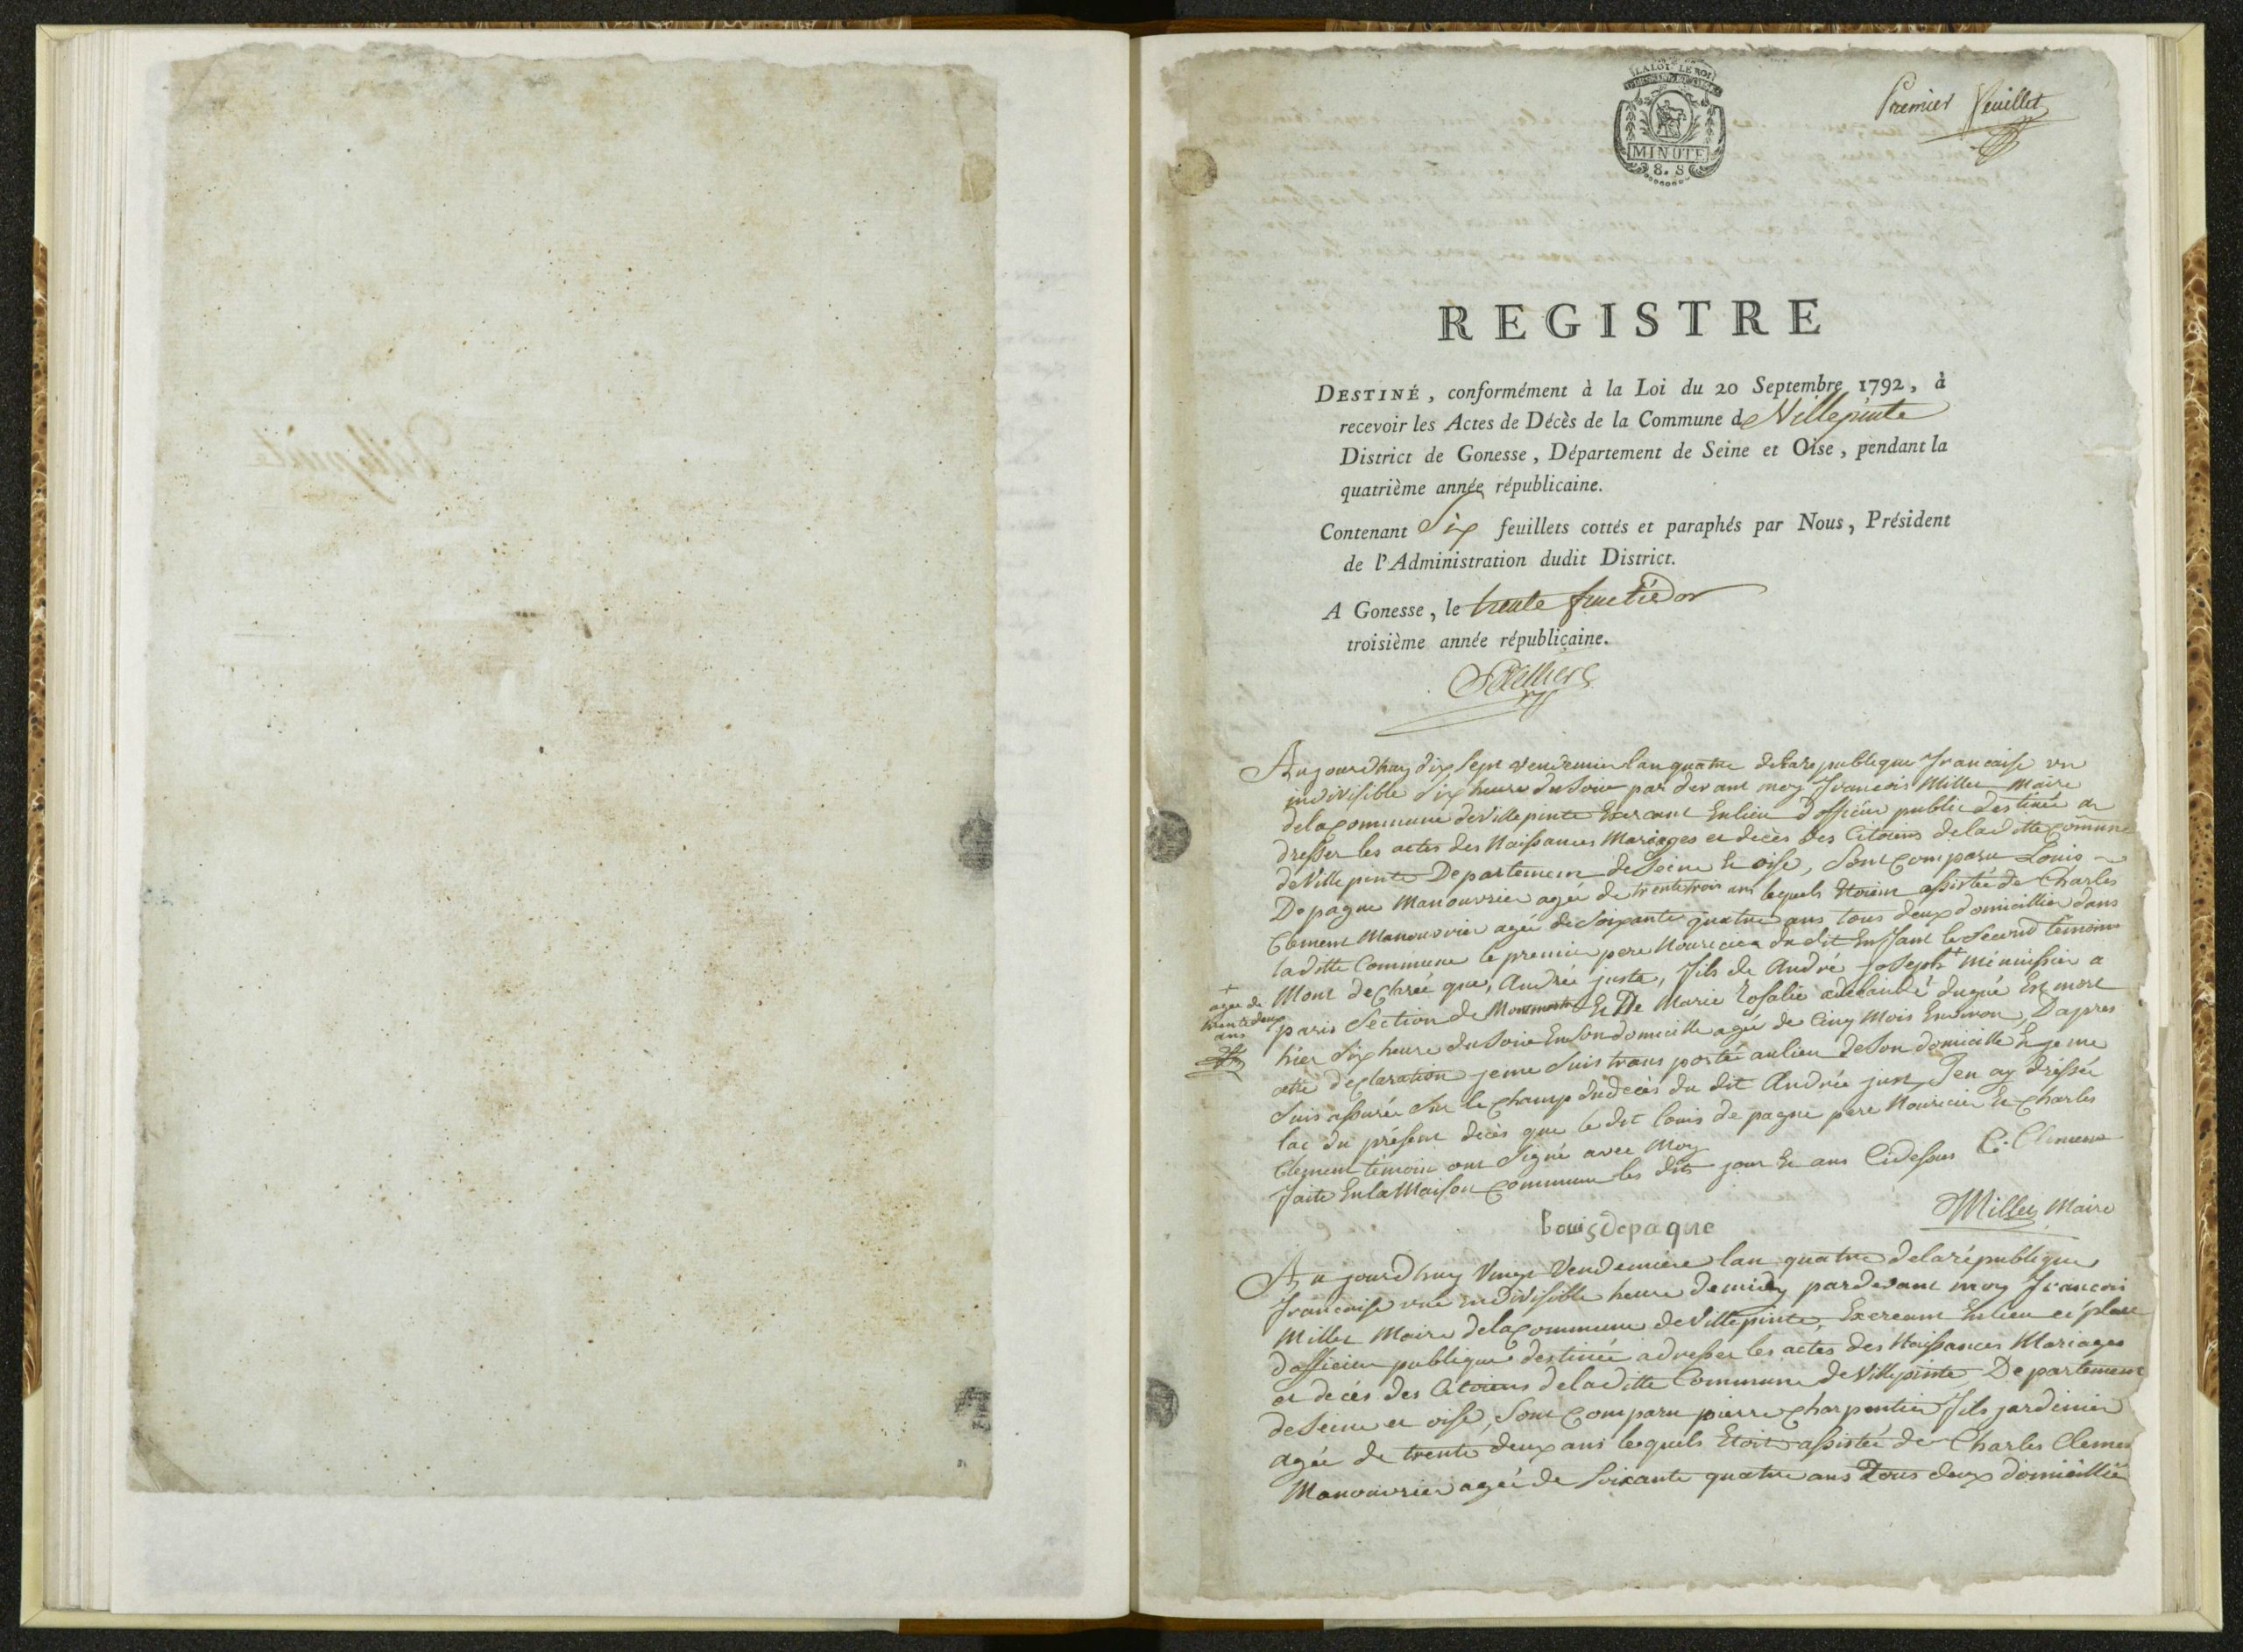 LA LOI LE ROI
MINUTE
8. S
Premier feuillet
REGISTRE
DESTINÉ, conformément à la Loi du 20 Septembre 1792, à
recevoir les Actes de Décès de la Commune de Villepinte
District de Gonesse, Département de Seine et Oise, pendant la
quatrième année républicaine.
Contenant Six feuillets cottés et paraphés par Nous, Président
de l'Administration dudit District.
A Gonesse, le trente fructidor
troisième année républicaine.
Aujourdhuy dix sept vendemier lan quatre de la republique francaise un
indivisible six heure du soire par devant moy francois Millet maire
de la commune de Villepinte Exercant En lieu d'officier public destinée a
dresser les actes des Naissances Mariages et decès des Citoiens de la ditte commune
de Villepinte Departement de Seine Et oise, sont comparu Louis
Depagne Manouvrier agée de trente trois ans lequels Etoien assistée de Charles
Clement Manouvrier agée de soixante quatre ans tous deux domicillier dans
la ditte Commune le premier pere Nouricier du dit Enffant le second temoin
Mont declarée que, André juste, fils de André joseph + menuissier a
+ agée de
trente deux
ans
paris Section de Et De Marie Rosalie adelaide dugué Est mort
hier six heure du soire En son domicille agée de Cinq Mois Environ, Dapres
cette declaration je me suis transportée au lieu de son domicille Et je me
suis assurée sur le champ du decès du dit Andrée just, J'en ay dressée
lac du présent decès que le dit louis depagne pere Nouricier Et Charles
Clement témoin ont signé avec Moy
faite En la Maison Commune les dits jour Et ans Cidessus C. Clement
Millet Maire
Louis depagne
Aujourdhuy Vingt Vendemiere lan quatre de la république
francaise une indivisible heure de midy pardevant moy francois
Millet Maire de la commune de Villepinte, Exercant En lieu et place
d'officier publique destinée a dresser les actes des Naissances Mariages
et decès des Citoiens de la ditte Commune de Villepinte Departement
de Seine et oise, Sont comparu pierre charpentier fils jardinier
agée de trente deux ans lequels Etoit assistée de Charles Clement
Manouvrier agée de soixante quatre ans Tous deux domicillié